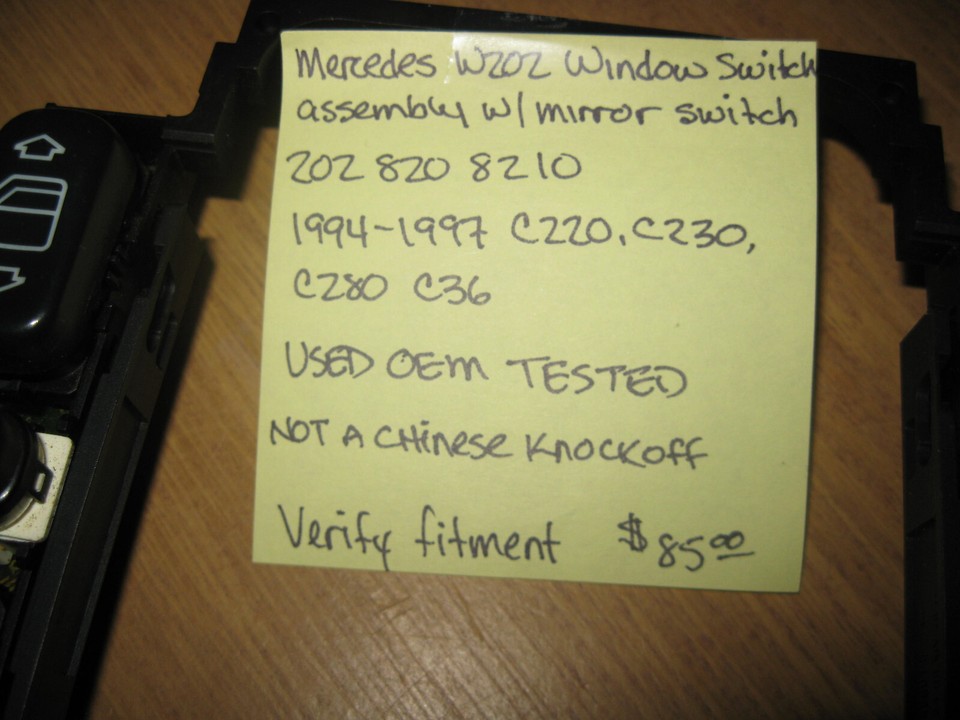 Mercedes W202 Window Switch
assembly w/ mirror switch
202 820 8210
1994-1997 C220, C230,
C280 C36
USED OEM TESTED
NOT A CHinese KnockoFF
Verify fitment $85.00